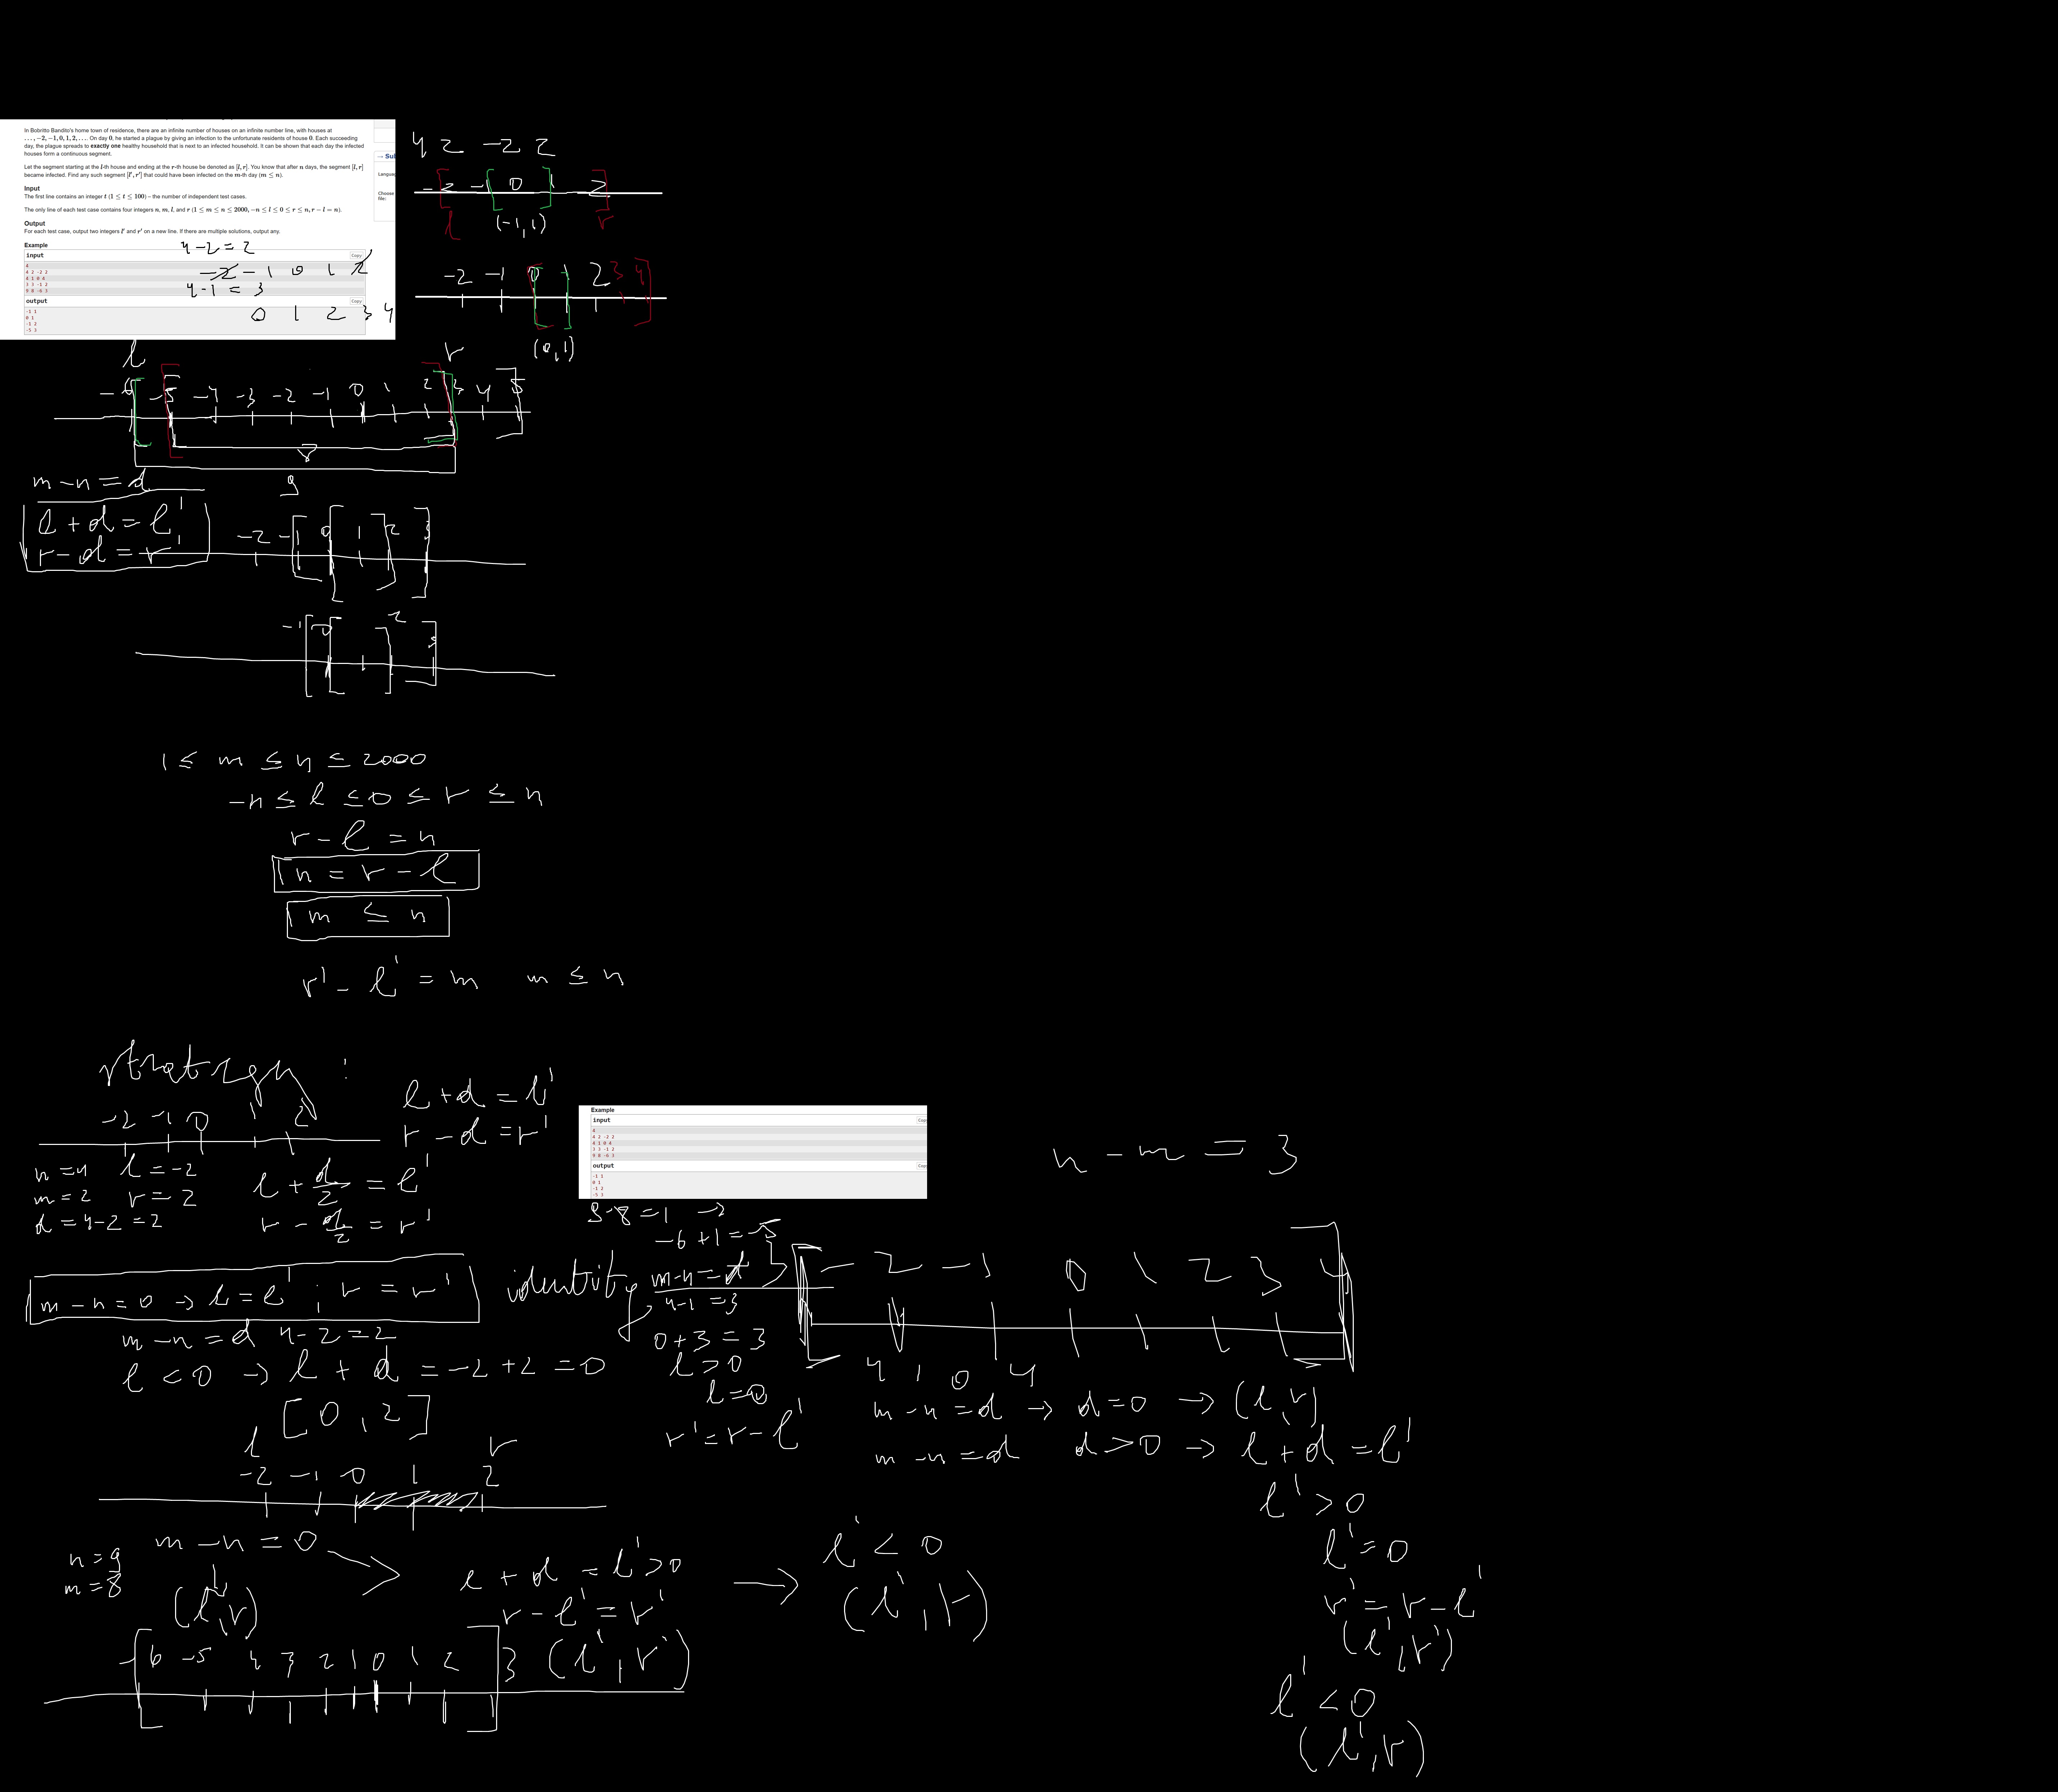 In Bobritto Bandito's home town of residence, there are an infinite number of houses on an infinite number line, with houses at
..., −2, −1, 0, 1, 2, .... On day 0, he started a plague by giving an infection to the unfortunate residents of house 0. Each succeeding
day, the plague spreads to exactly one healthy household that is next to an infected household. It can be shown that each day the infected
houses form a continuous segment.
Let the segment starting at the l-th house and ending at the r-th house be denoted as [l, r]. You know that after n days, the segment [l, r]
became infected. Find any such segment [l′, r′] that could have been infected on the m-th day (m ≤ n).
Input
The first line contains an integer t (1 ≤ t ≤ 100) – the number of independent test cases.
The only line of each test case contains four integers n, m, l, and r (1 ≤ m ≤ n ≤ 2000, −n ≤ l ≤ 0 ≤ r ≤ n, r − l = n).
Output
For each test case, output two integers l′ and r′ on a new line. If there are multiple solutions, output any.
Example
input
Copy
4
4 2 -2 2
4 1 0 4
3 3 -1 2
9 8 -6 3
output
Copy
-1 1
0 1
-1 2
-5 3
→ Su
Langua
Choose
file:
4-2=2
-2 -1 0 1 2
4-1=3
0 1 2 3 4
4 2 -2 2
-2 -1 0 1 2
l (-1,1) r
-2 -1 0 1 2 3 4
(0,1)
l r
-6 -5 -4 -3 -2 -1 0 1 2 3 4 5
9
m-n=d
l+d=l'
r-d=r'
-2 -1 0 1 2 3
-1 0 2 3
1 ≤ m ≤ n ≤ 2000
-n ≤ l ≤ 0 ≤ r ≤ n
r-l=n
n=r-l
m ≤ n
r'-l'=m m ≤ n
strategy :
-2 -1 0 1 2
l+d=l'
r-d=r'
n=4 l=-2
m=2 r=2
d=4-2=2
l+d/2=l'
r-d/2=r'
m-n=0 → l=l' ; r=r'
identity
m-n=d 4-2=2
l<0 → l+d=-2+2=0
[0,2]
l r
-2 -1 0 1 2
n=9
m=8
m-n=0
(l,r)
l+d=l'>0
r-l'=r'
(l',r')
→ l'<0
(l',r)
-6 -5 4 3 2 1 0 1 2 3
Example
input
Cop
4
4 2 -2 2
4 1 0 4
3 3 -1 2
9 8 -6 3
output
Cop
-1 1
0 1
-1 2
-5 3
9-8=1 →
-6+1=-5
m-n=d
4-1=3
0+3=3
l>0
l=0
r'=r-l'
n-m=3
-2 -1 0 1 2 3 4
4 1 0 4
m-n=d → d=0 → (l,r)
m-n=d d>0 → l+d=l'
l'>0
l'=0
r'=r-l'
(l',r')
l'<0
(l',r)